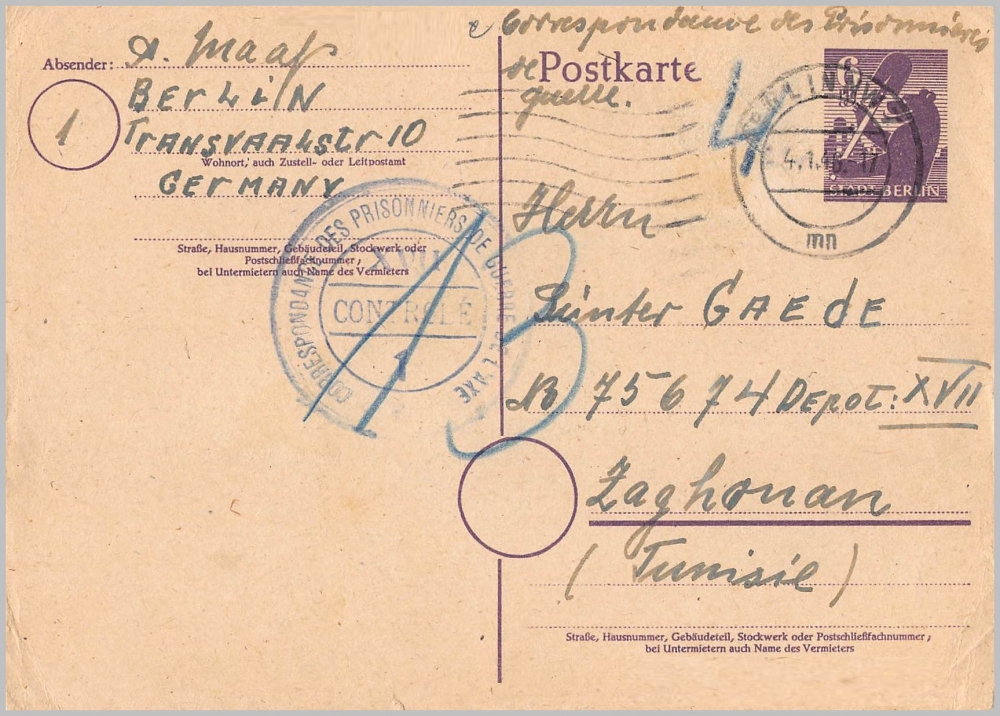 Absender: A. Maaß
BERLIN
1
TRANSVAALSTR 10
Wohnort, auch Zustell- oder Leitpostamt
GERMANY
Straße, Hausnummer, Gebäudeteil, Stockwerk oder
Postschließfachnummer;
bei Untermietern auch Name des Vermieters
CORRESPONDANCE DES PRISONNIERS DE GUERRE DE L'AXE
XVII
CONTRÔLÉ
1
Correspondance des Prisonniers
de Postkarte
guerre.
6
STADT BERLIN
BERLIN
4.1.46.-17
mn
Herrn
Günter GAEDE
No 75674 DEPOT: XVII
Zaghouan
(Tunisie)
Straße, Hausnummer, Gebäudeteil, Stockwerk oder Postschließfachnummer;
bei Untermietern auch Name des Vermieters